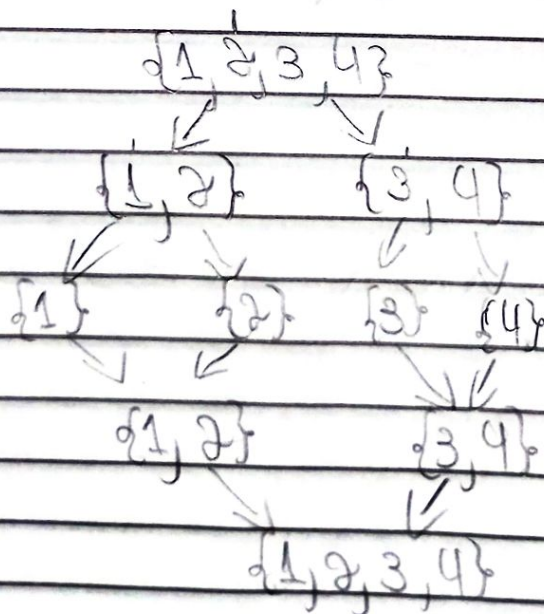 {1,2,3,4}
{1,2} {3,4}
{1} {2} {3} {4}
{1,2} {3,4}
{1,2,3,4}